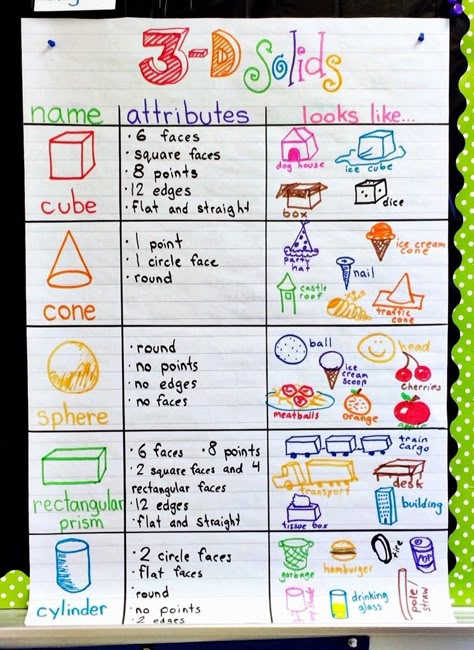 3-D Solids
name attributes looks like...
cube
• 6 faces
• square faces
• 8 points
• 12 edges
• flat and straight
dog house
ice cube
box
dice
cone
• 1 point
• 1 circle face
• round
party hat
ice cream cone
nail
castle roof
traffic cone
sphere
• round
• no points
• no edges
• no faces
ball
head
ice cream scoop
cherries
meatballs
orange
rectangular prism
• 6 faces • 8 points
• 2 square faces and 4
rectangular faces
• 12 edges
• flat and straight
train cargo
transport
desk
tissue box
building
cylinder
• 2 circle faces
• flat faces
• round
• no points
• 2 edges
garbage
hamburger
tire
POP
drinking glass
pole/
straw